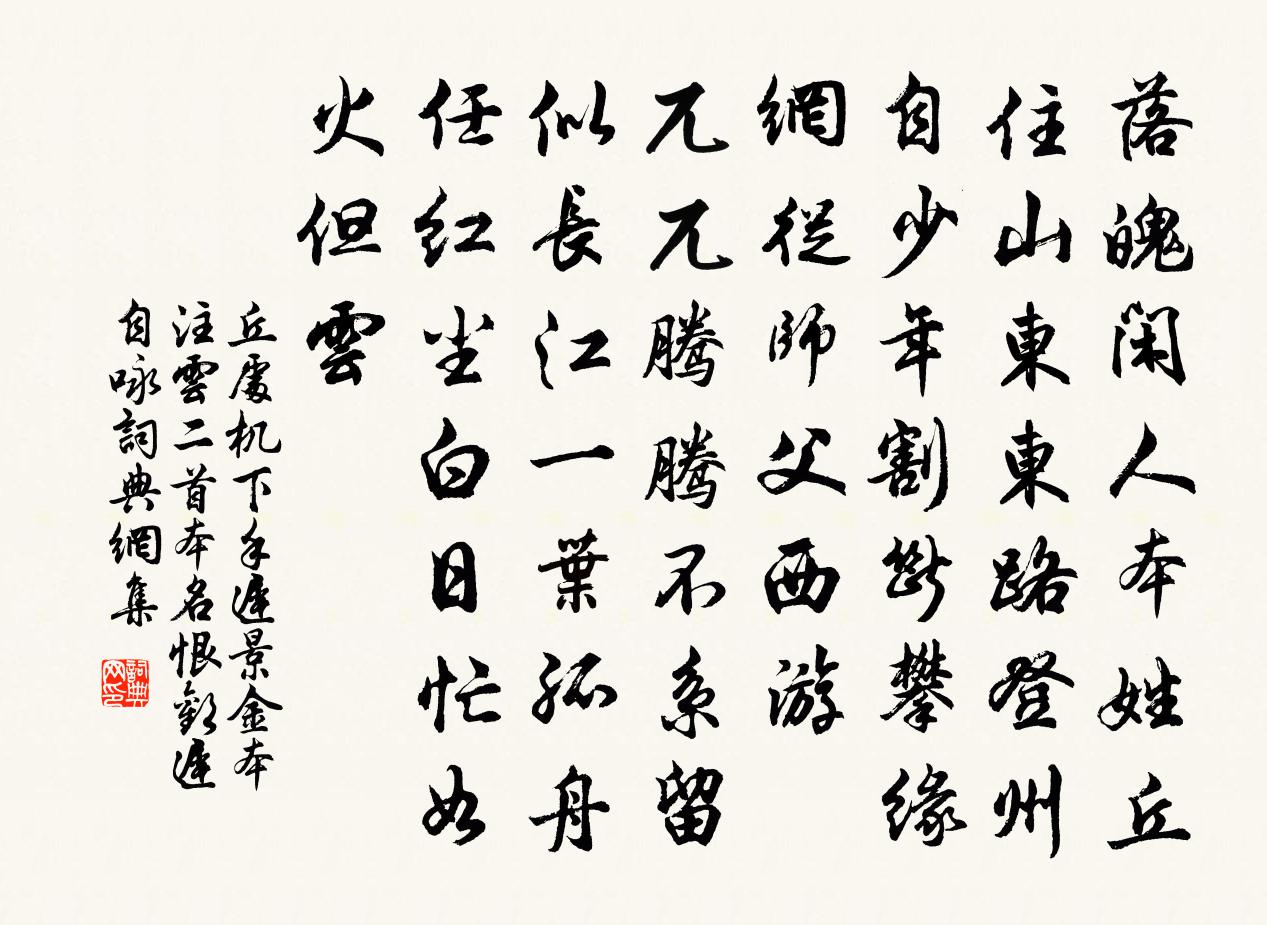 落魄閑人本姓丘
住山東東路登州
自少年割斷攀緣
網從師父西游
兀兀騰騰不系留
似長江一葉孤舟
任紅塵白日忙如
火但雲
丘處机下手遲景金本
注雲二首本名恨歡遲
自咏詞典網集
詞典网印